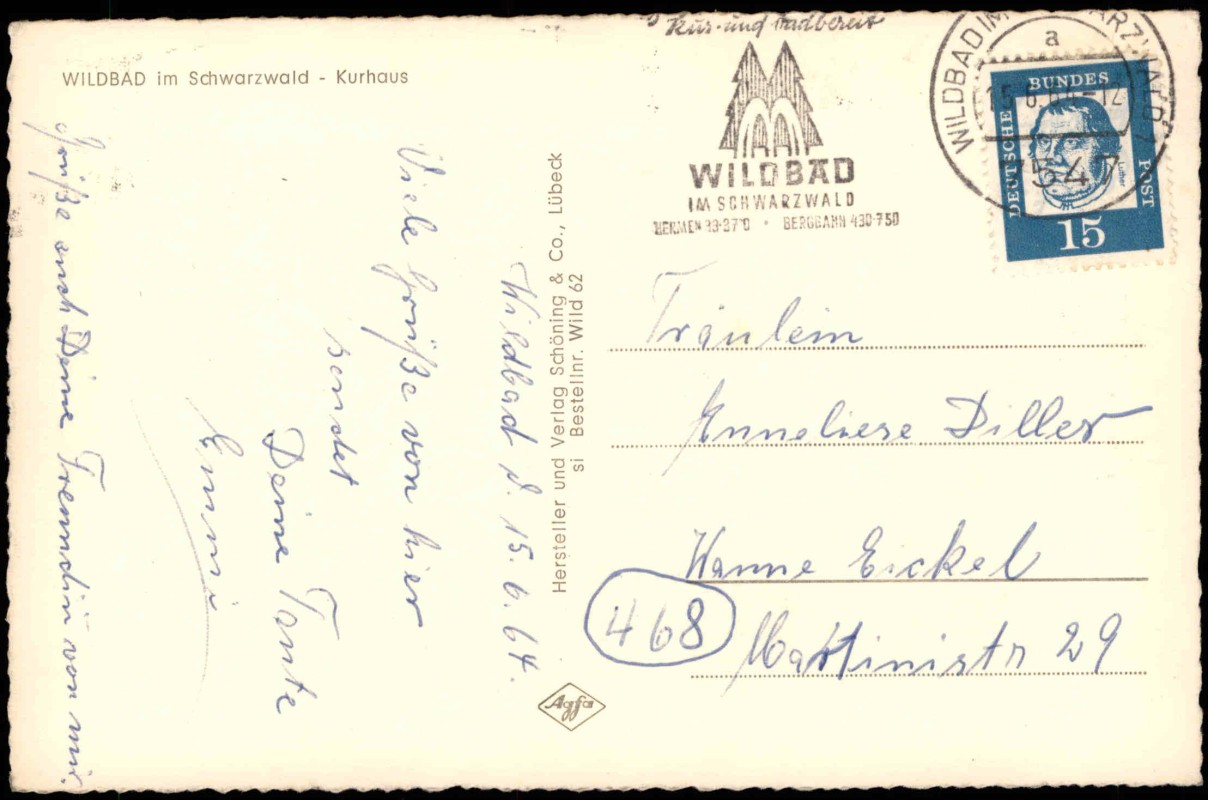 WILDBAD im Schwarzwald - Kurhaus
Wildbad d. 15.6.64.
Viele Grüße von hier
sendet
Deine Tante
Emmi
Grüße auch Deine Freundin von mir.
Hersteller und Verlag Schöning & Co., Lübeck
si Bestellnr. Wild 62
Agfa
Kur- und badbereit
WILDBAD
IM SCHWARZWALD
BERGBAHN 430-750
WILDBAD IM SCHWARZWALD
a
15.6.64-12
7547
DEUTSCHE BUNDES POST
Luther
15
Fräulein
Anneliese Diller
Wanne Eickel
468
Martinistr 29